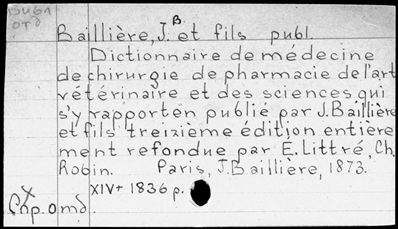 Baillière, J. B. et fils publ.
Dictionnaire de médecine
de chirurgie de pharmacie de l'art
vétérinaire et des sciences qui
s'y rapportén publié par J. Baillière
et fils treizième édition entière
ment refondue par E. Littré, Ch.
Robin. Paris, J. Baillière, 1873.
XIV+ 1836 p.